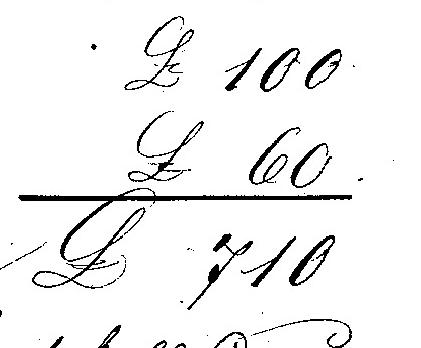 £ 100
£ 60
£ 710